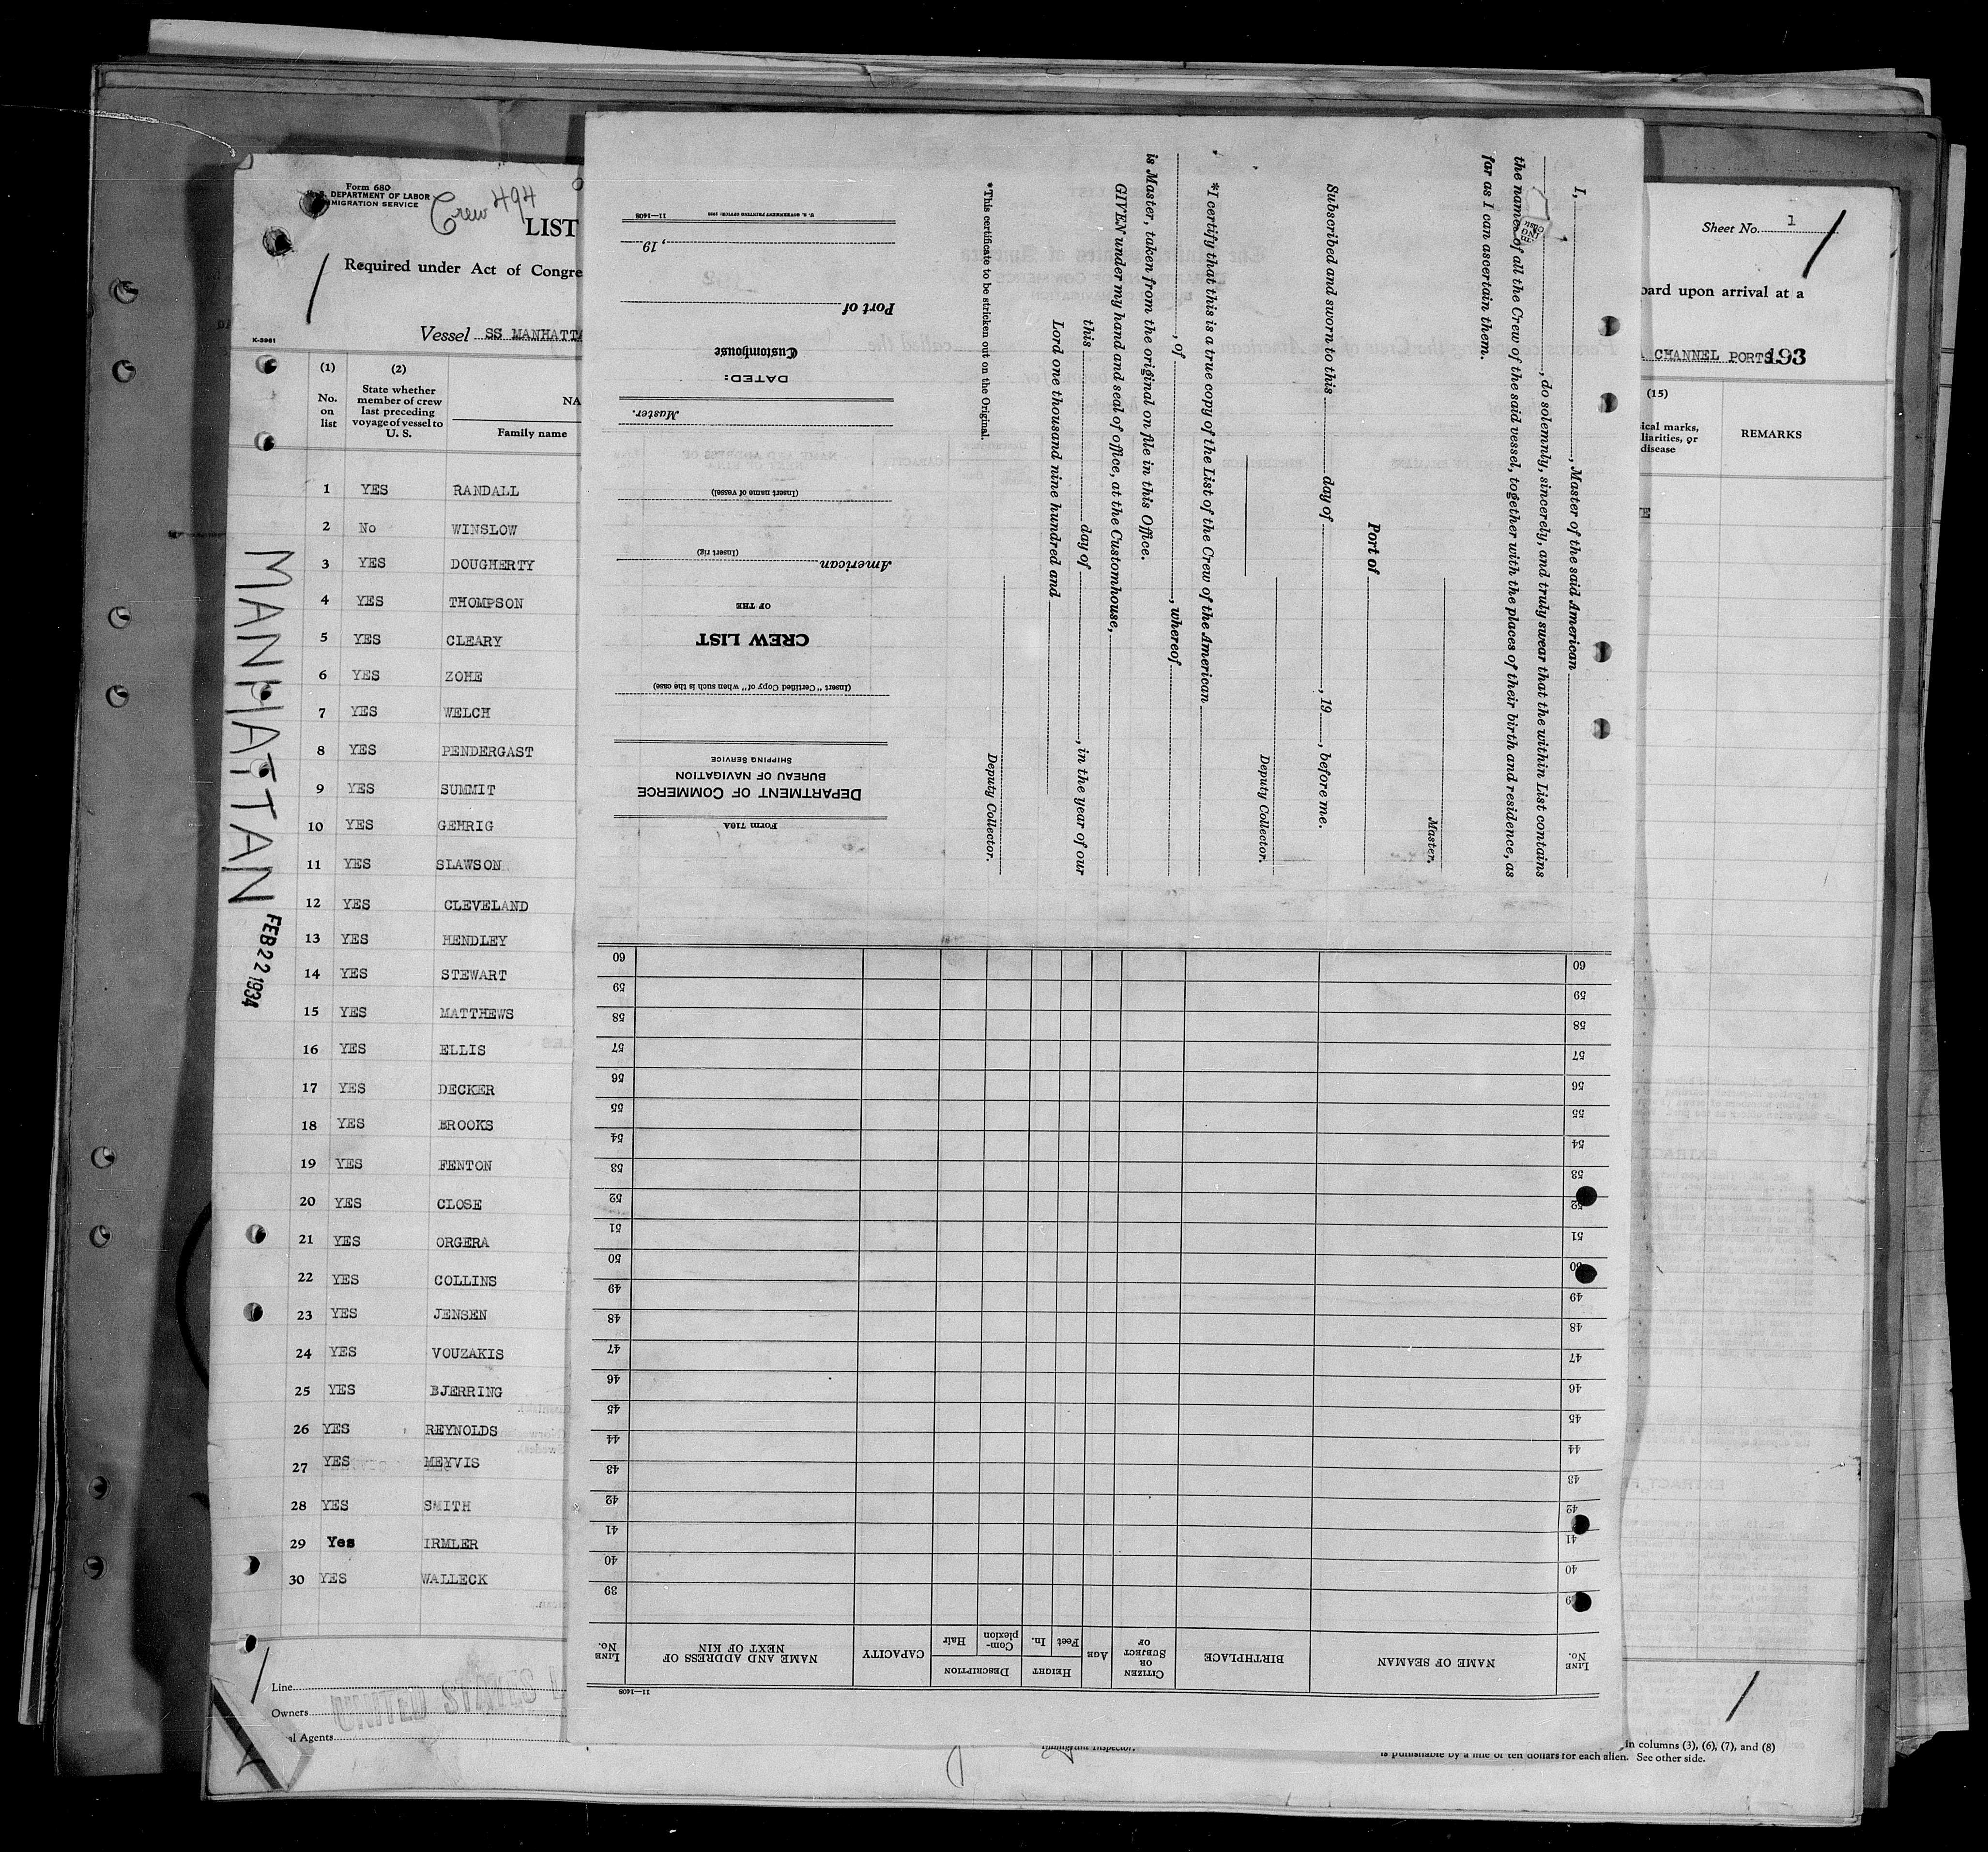 Form 680
DEPARTMENT OF LABOR
IMMIGRATION SERVICE
Crew 494
LIST
Required under Act of Congre
Vessel SS MANHATTA
K-3961
(1)
No.
on
list
(2)
State whether
member of crew
last preceding
voyage of vessel to
U. S.
NA
Family name
1 YES RANDALL
2 No WINSLOW
3 YES DOUGHERTY
4 YES THOMPSON
5 YES CLEARY
6 YES ZOHE
7 YES WELCH
8 YES PENDERGAST
9 YES SUMMIT
10 YES GEHRIG
11 YES SLAWSON
12 YES CLEVELAND
13 YES HENDLEY
14 YES STEWART
15 YES MATTHEWS
16 YES ELLIS
17 YES DECKER
18 YES BROOKS
19 YES FENTON
20 YES CLOSE
21 YES ORGERA
22 YES COLLINS
23 YES JENSEN
24 YES VOUZAKIS
25 YES BJERRING
26 YES REYNOLDS
27 YES MEYVIS
28 YES SMITH
29 Yes IRMLER
30 YES WALLECK
MANHATTAN
FEB 22 1934
Line
Owners
UNITED STATES L
al Agents
Sheet No. 1
oard upon arrival at a
CHANNEL PORTS 193
(15)
ical marks,
liarities, or
disease
REMARKS
Immigrant Inspector.
in columns (3), (6), (7), and (8)
is punishable by a fine of ten dollars for each alien. See other side.
I, , Master of the said American
, do solemnly, sincerely, and truly swear that the within List contains
the names of all the Crew of the said vessel, together with the places of their birth and residence, as
far as I can ascertain them.
Master.
Port of
Subscribed and sworn to this day of , 19 , before me.
Deputy Collector.
*I certify that this is a true copy of the List of the Crew of the American
, of , whereof
is Master, taken from the original on file in this Office.
GIVEN under my hand and seal of office, at the Customhouse,
this day of , in the year of our
Lord one thousand nine hundred and
Deputy Collector.
*This certificate to be stricken out on the Original.
Form 710A
DEPARTMENT OF COMMERCE
BUREAU OF NAVIGATION
SHIPPING SERVICE
(Insert "Certified Copy of" when such is the case)
CREW LIST
OF THE
American
(Insert rig)
(Insert name of vessel)
Master.
DATED:
Customhouse
Port of
, 19
11—1408
11—1408
LINE No.
NAME OF SEAMAN
BIRTHPLACE
CITIZEN OR SUBJECT OF
AGE
HEIGHT
Feet
In.
DESCRIPTION
Complexion
Hair
CAPACITY
NAME AND ADDRESS OF NEXT OF KIN
LINE No.
39
40 40
41 41
42 42
43 43
44 44
45 45
46 46
47 47
48 48
49 49
50
51 51
52 52
53 53
54 54
55 55
56 56
57 57
58 58
59 59
60 60